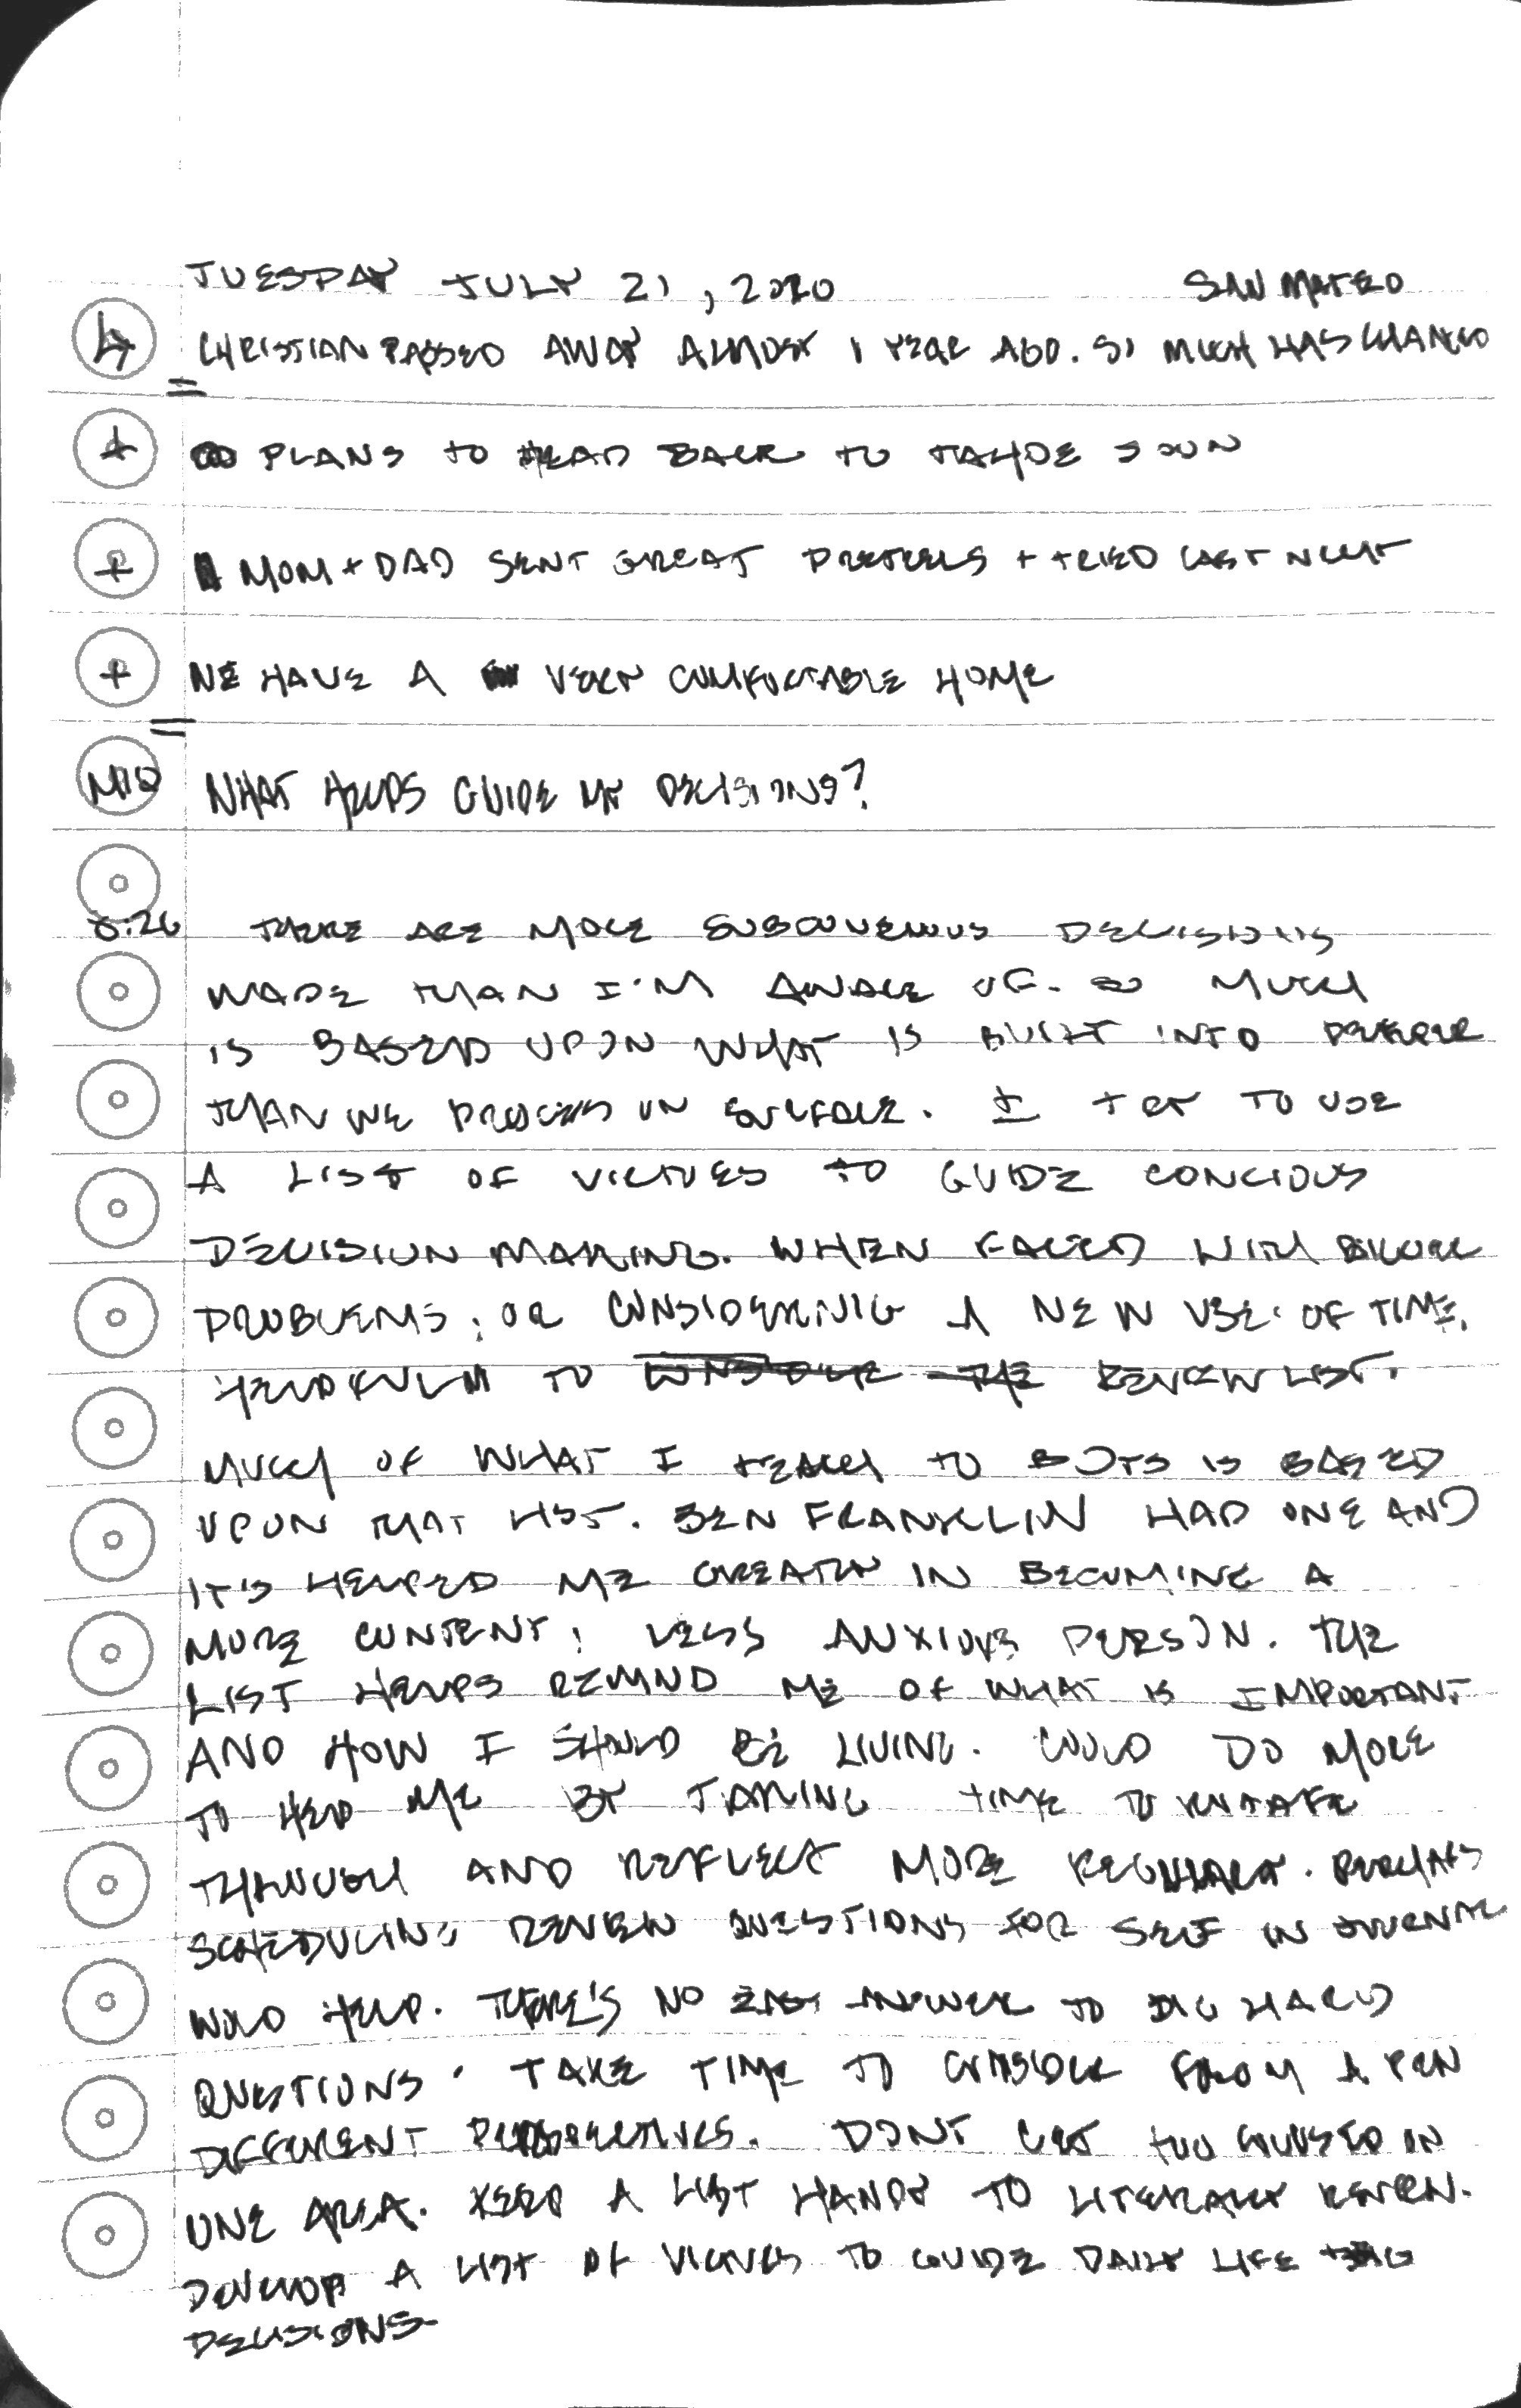 TUESDAY JULY 21, 2020 SAN MATEO
CHRISTIAN PASSED AWAY ALMOST 1 YEAR AGO. SO MUCH HAS CHANGED
+ PLANS TO HEAD BACK TO TAHOE SOON
+ MOM + DAD SENT GREAT PRETZELS + TRIED LAST NIGHT
+ WE HAVE A VERY COMFORTABLE HOME
WHAT HELPS GUIDE MY DECISIONS?
8:26 THERE ARE MORE SUBCONCIOUS DECISIONS
MADE THAN I'M AWARE OF. SO MUCH
IS BASED UPON WHAT IS BUILT INTO DEEPER
THAN WE PROCESS ON SURFACE. I TRY TO USE
A LIST OF VIRTUES TO GUIDE CONCIOUS
DECISION MAKING. WHEN FACED WITH
PROBLEMS, OR CONSIDERING A NEW USE OF TIME,
HELPFUL TO REVIEW LIST.
MUCH OF WHAT I TEACH TO BOYS IS BASED
UPON THAT LIST. BEN FRANKLIN HAD ONE AND
IT'S HELPED ME GREATLY IN BECOMING A
MORE CONTENT, LESS ANXIOUS PERSON. THE
LIST HELPS REMIND ME OF WHAT IS IMPORTANT
AND HOW I SHOULD BE LIVING. COULD DO MORE
TO HELP ME BY TAKING TIME TO ROTATE
THROUGH AND REFLECT MORE REGULARLY. PERHAPS
SCHEDULING REVIEW QUESTIONS FOR SELF IN JOURNAL
WOULD HELP. THERE'S NO EASY ANSWER TO BIG HARD
QUESTIONS. TAKE TIME TO CONSIDER FROM A FEW
DIFFERENT PERSPECTIVES. DONT GET TOO IN
ONE AREA. KEEP A LIST HANDY TO LITERALLY REVIEW.
DEVELOP A LIST OF VIRTUES TO GUIDE DAILY LIFE + BIG
DECISIONS